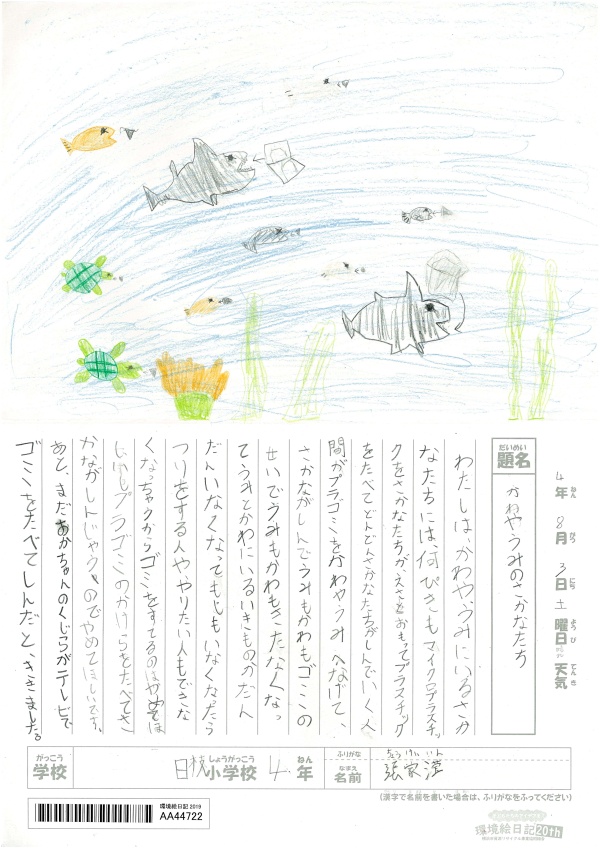 4年 8月 3日 土曜日 天気
ねん がつ にち ようび てんき
だいめい
題名
かわやうみのさかなたち
わたしは、かわやうみにいるさか
なたちには何びきもマイクロプラスチッ
クをさかなたちがえさとおもってプラスチック
をたべてどんどんさかなたちがしんでいく人
間がプラゴミをかわやうみへなげて、
さかながしんでうみもかわもゴミの
せいでうみもかわもきたなくなっ
てうみとかわにいるいきものがだん
だんいなくなってもしもいなくなったら
つりをする人ややりたい人もできな
くなっちゃうからゴミをすてるのはやめてほ
しいしプラゴミのかけらをたべてさ
かながしんじゃうのでやめてほしいです。
あと、まだあかちゃんのくじらがテレビで
ゴミをたべてしんだと、ききました。
がっこう
学校
しょうがっこう
日枝小学校
ねん
4年
ふりがな
ちょう けい いん
なまえ
名前
張家
(漢字で名前を書いた場合は、ふりがなをふってください)
環境絵日記 2019
AA44722
環境絵日記20th